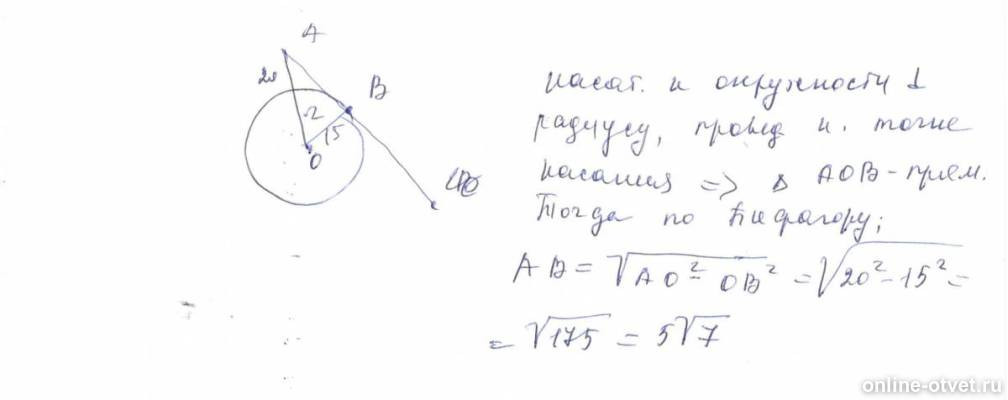 A
20
B
2
15
O
касат. к окружности ⊥
радиусу, провед к. точке
касания => Δ AOB - прям.
Тогда по Пифагору;
AB = √AO² - OB² = √20² - 15² =
= √175 = 5√7
online-otvet.ru